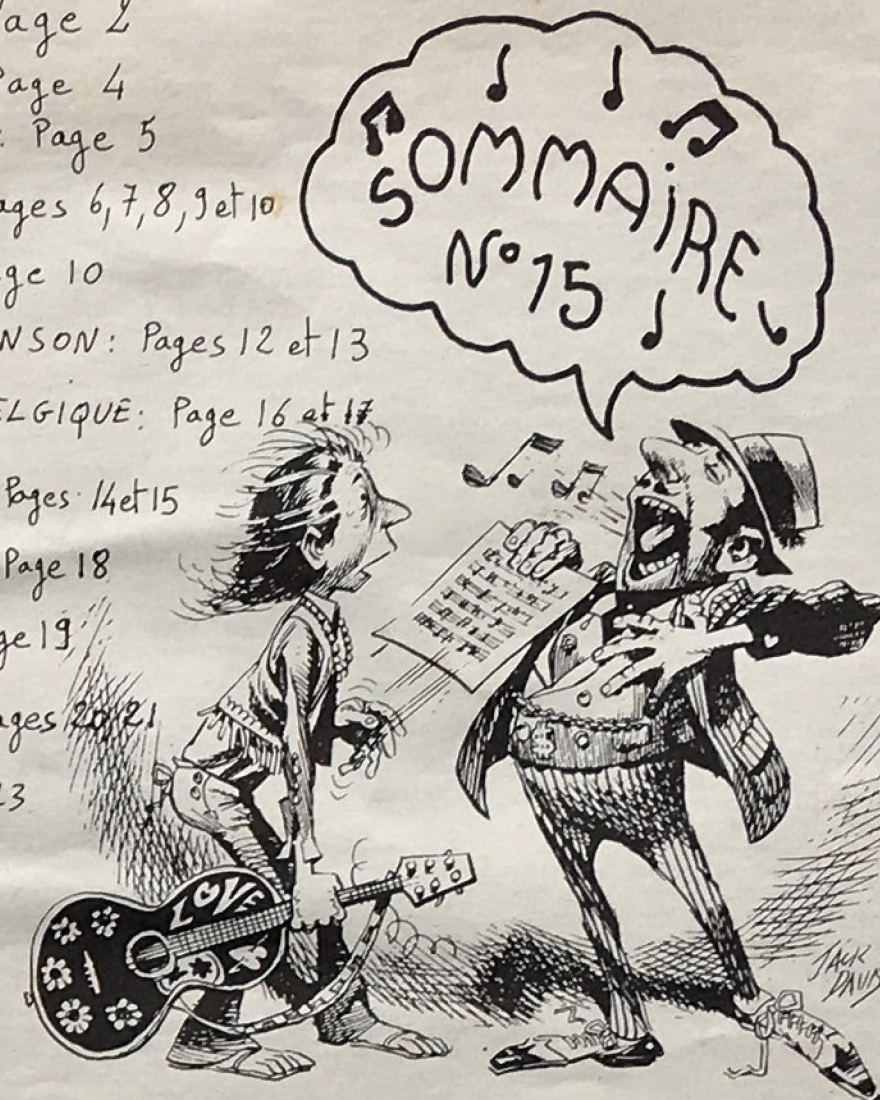 age 2
Page 4
: Page 5
ages 6,7,8,9 et 10
ge 10
NSON: Pages 12 et 13
ELGIQUE: Page 16 et 17
Pages 14 et 15
Page 18
ge 19
ages 20 21
23
SOMMAiRE
N° 15
LOVE
JACK
DAVIS